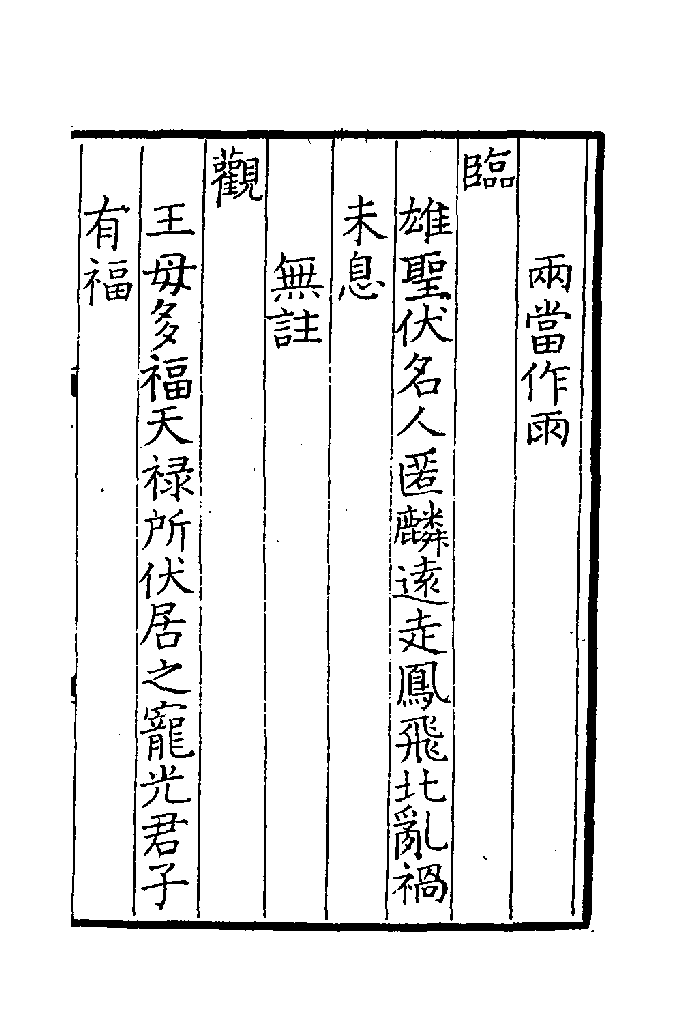 兩當作雨
臨
雄聖伏名人匿麟遠走鳳飛北亂禍
未息
無註
觀
王母多福天禄所伏居之寵光君子
有福